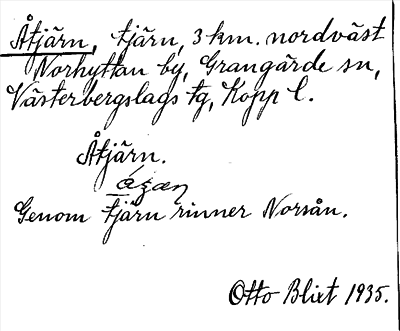 Åtjärn, tjärn, 3 km. nordväst
Norhyttan by, Grangärde sn,
Västerbergslags tg, Kopp l.
Åtjärn.
Genom tjärn rinner Norsån.
Otto Blixt 1935.